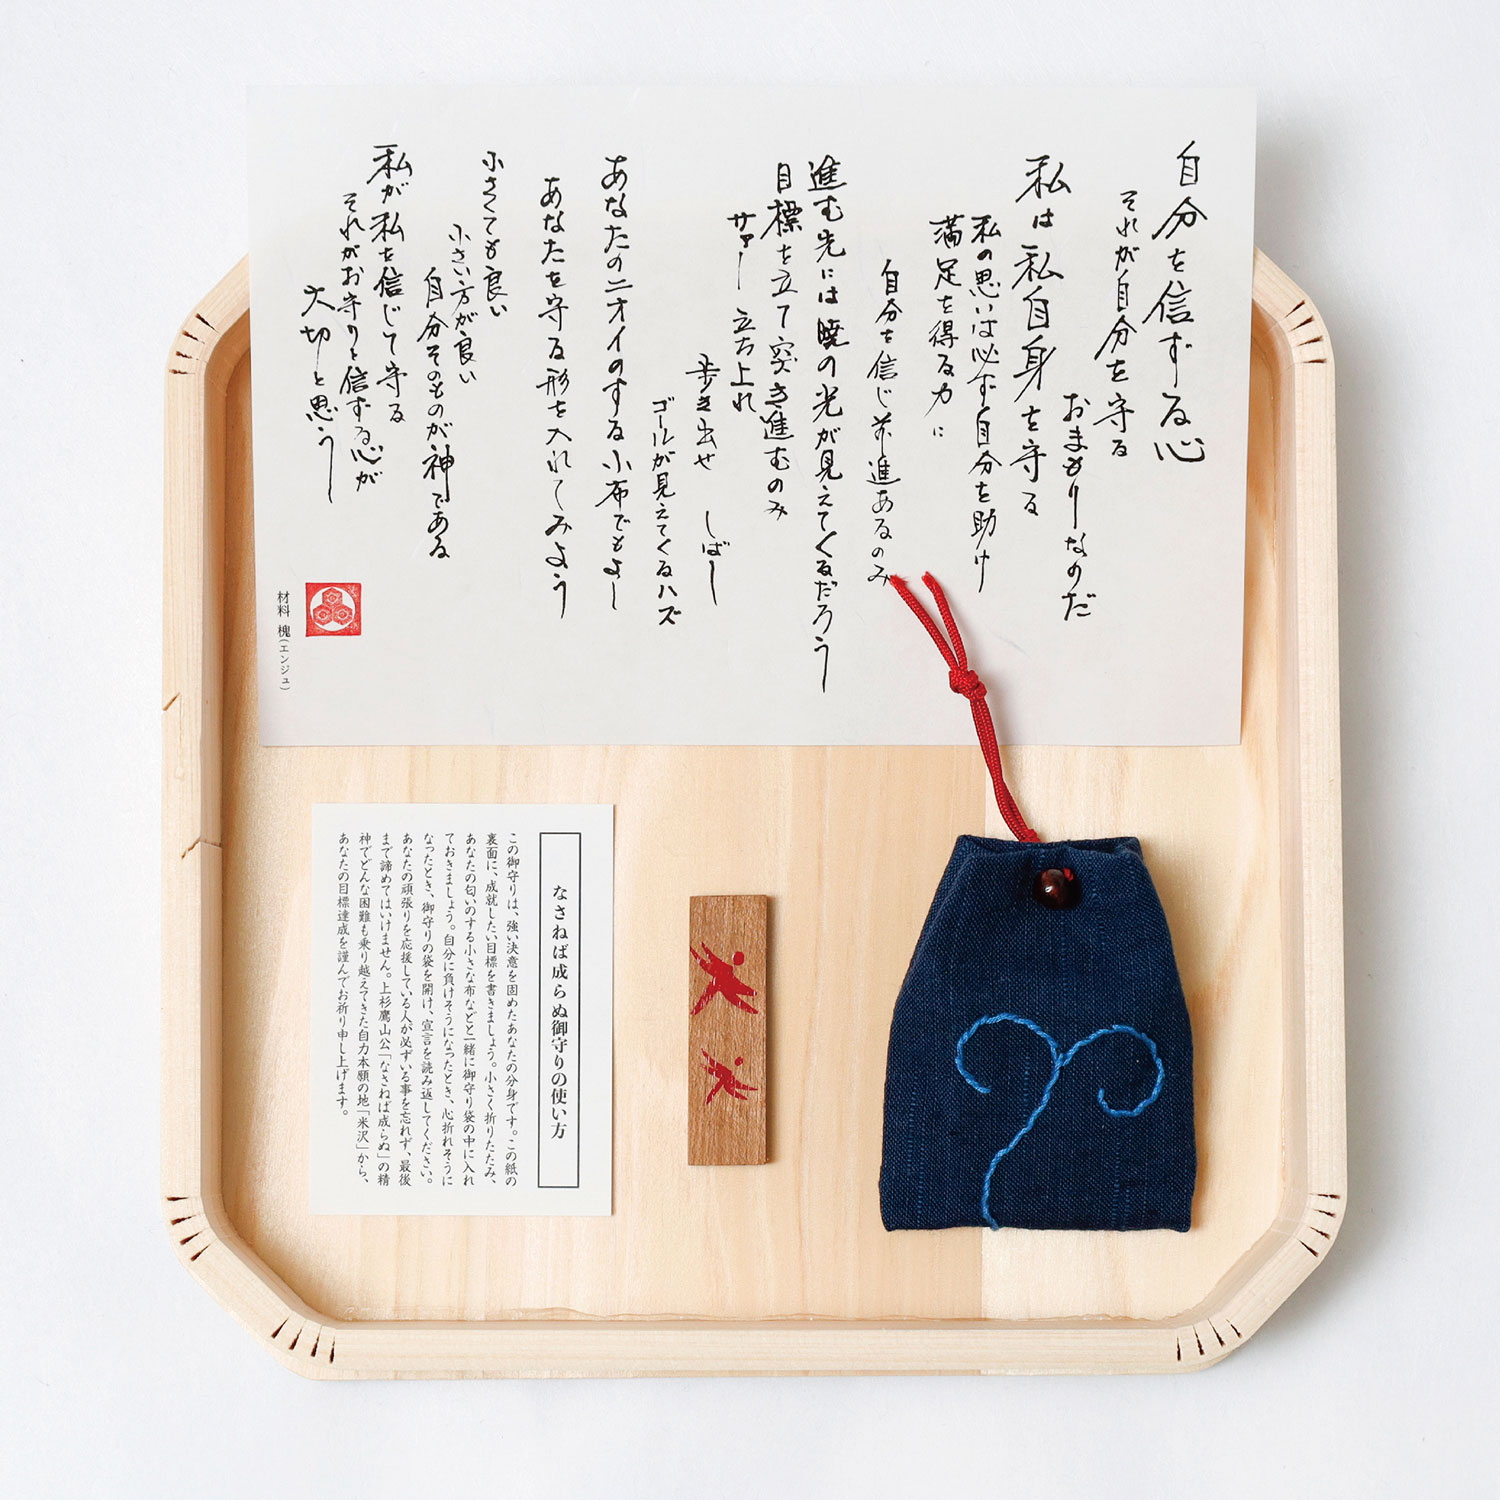 自分を信ずる心
それが自分を守る
おまもりなのだ
私は私自身を守る
私の思いは必ず自分を助け
満足を得る力に
自分を信じ前進あるのみ
進む先には暁の光が見えてくるだろう
目標を立て突き進むのみ
サァー立ち上れ
歩き出せ しばし
ゴールが見えてくるハズ
あなたのニオイのする小布でもよし
あなたを守る形を入れてみよう
小さくても良い
小さい方が良い
自分そのものが神である
私が私を信じて守る
それがお守りと信ずる心が
大切と思う
材料 槐(エンジュ)
なさねば成らぬ御守りの使い方
この御守りは、強い決意を固めたあなたの分身です。この紙の
裏面に、成就したい目標を書きましょう。小さく折りたたみ、
あなたの匂いのする小さな布などと一緒に御守り袋の中に入れ
ておきましょう。自分に負けそうになったとき、心折れそうに
なったとき、御守りの袋を開け、宣言を読み返してください。
あなたの頑張りを応援している人が必ずいる事を忘れず、最後
まで諦めてはいけません。上杉鷹山公「なさねば成らぬ」の精
神でどんな困難も乗り越えてきた自力本願の地「米沢」から、
あなたの目標達成を謹んでお祈り申し上げます。